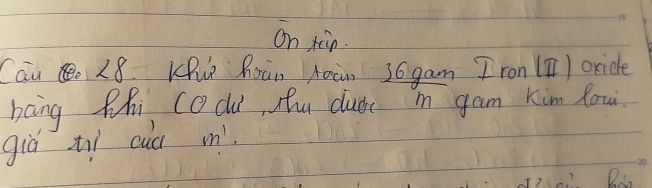 Ôn tập.
Câu 28. Khử hoàn toàn 36 gam Iron (II) oxide
bằng khí CO dư, thu được m gam kim loại.
giá trị của m.